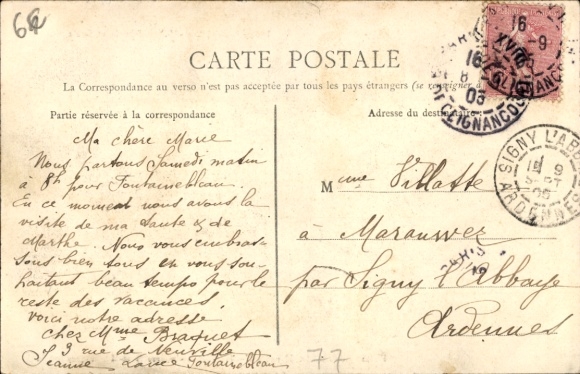 CARTE POSTALE
La Correspondance au verso n'est pas acceptée par tous les pays étrangers (se renseigner à
Partie réservée à la correspondance
Adresse du destinataire
Ma chère Marie
Nous partons Samedi matin
à 8h pour Fontainebleau.
En ce moment nous avons la
visite de ma tante & de
Marthe. Nous vous embras-
sons bien tous en vous sou-
haitant beau temps pour le
reste des vacances.
Voici notre adresse
chez Mme Braquet
9 rue de Neuville
Jeanne Fontainebleau
Mme Villatte
à Maranwez
par Signy l'Abbaye
Ardennes
77
SIGNY L'AB
ARDENNES
16
XVIII
CLIGNANCOURT